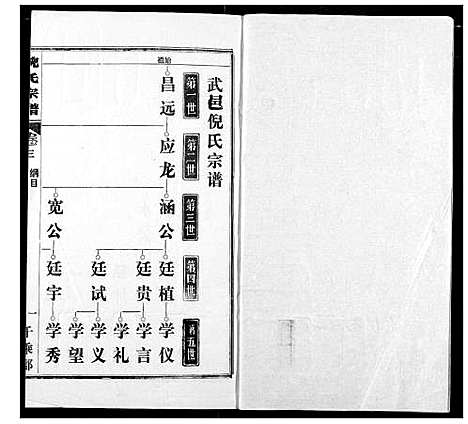 武邑倪氏宗谱
第一世
第二世
第三世
第四世
第五世
始祖
昌远
应龙
涵公
宽公
廷植
廷贵
廷试
廷宇
学仪
学言
学礼
学义
学望
学秀
倪氏宗谱
卷三
纲目
一
千乘郡